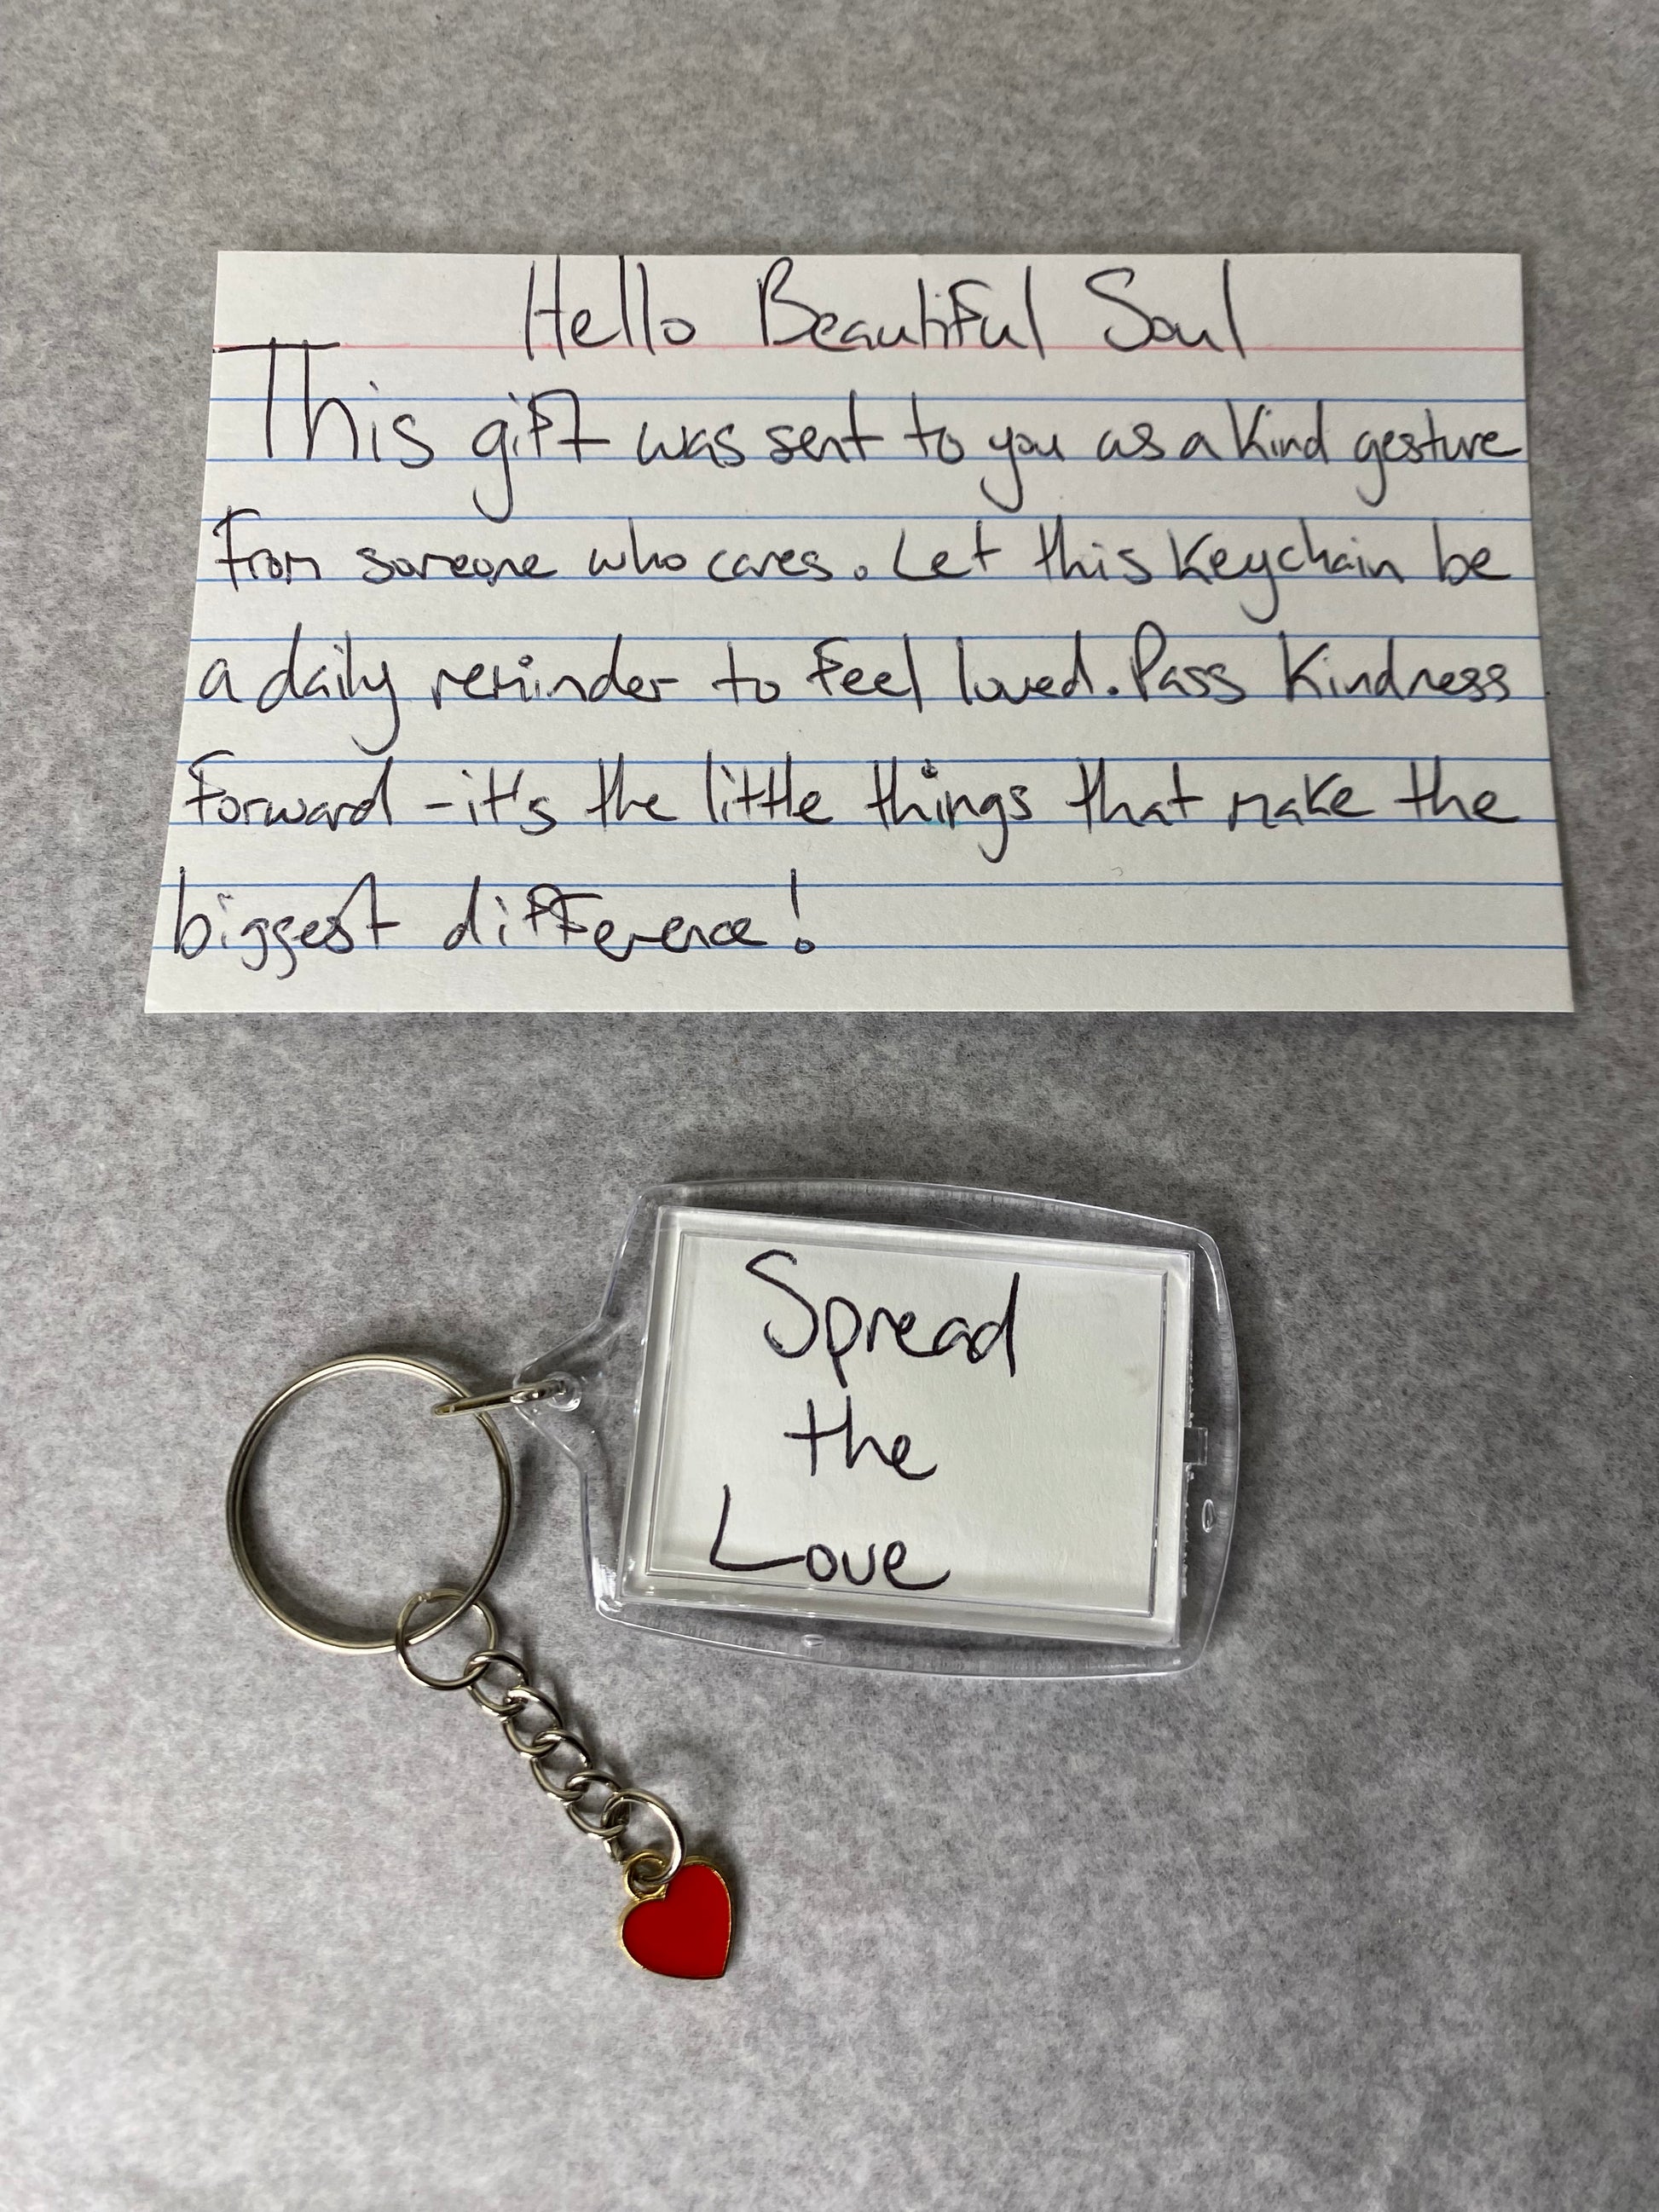 Hello Beautiful Soul
This gift was sent to you as a Kind gesture
From someone who cares. Let this Keychain be
a daily reminder to Feel loved. Pass Kindness
Forward - it's the little things that make the
biggest difference!
Spread
the
Love